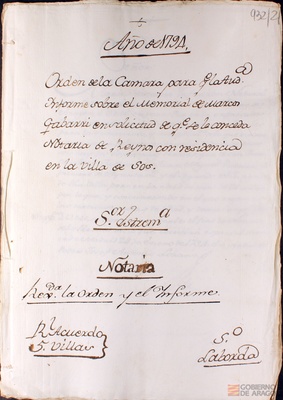 932/2
Año de 1794.
Orden de la Camara para q.e la Aud.a
Informe sobre el Memorial de Marcos
Gabarri en solicitud de q.e se le conceda
Notaria de Reyno con residencia
en la Villa de Sos.
S.or Estrem.a
Notaria
Rex.da la Orden y el Informe
R.l Acuerdo
5. Villas
S.o
Laborda
GOBIERNO
DE ARAGON